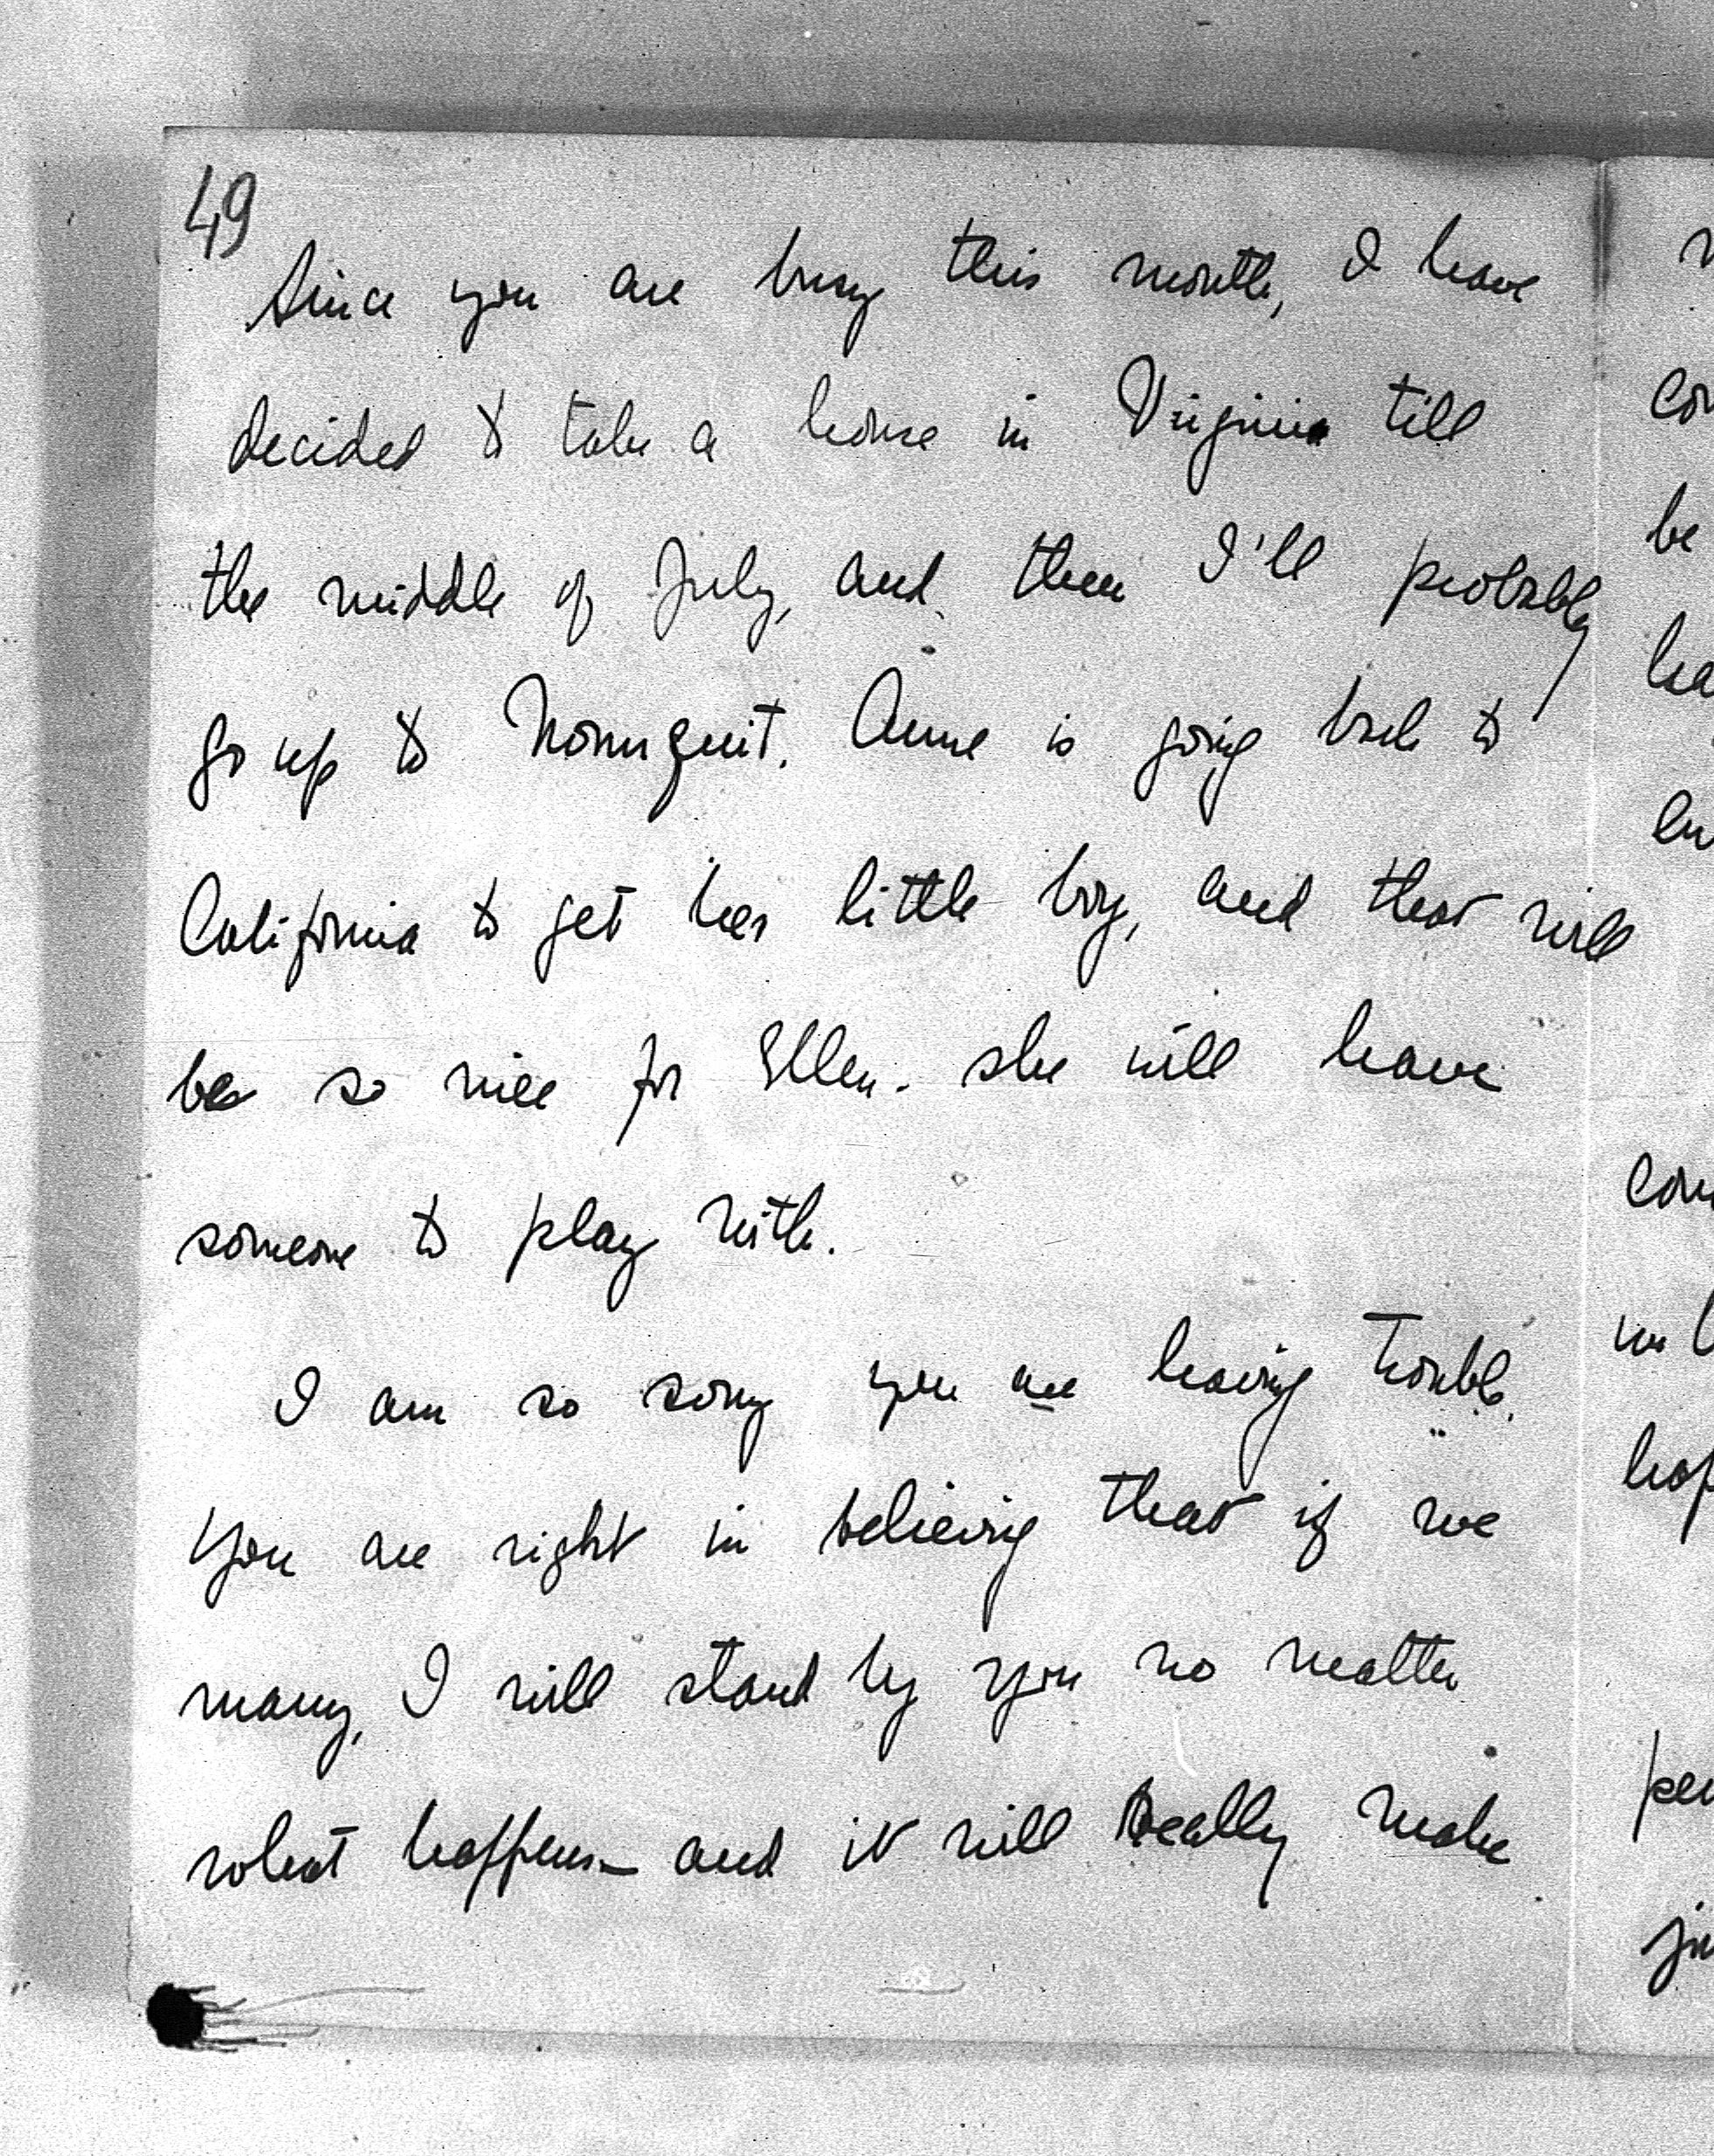 49
Since you are busy this month, I have
decided to take a house in Virginia till
the middle of July, and then I'll probably
go up to Nonnquit. Anne is going back to
California to get her little boy, and that will
be so nice for Ellen. she will have
someone to play with.
I am so sorry you are having trouble.
You are right in believing that if we
marry, I will stand by you no matter
what happens— and it will really make
be